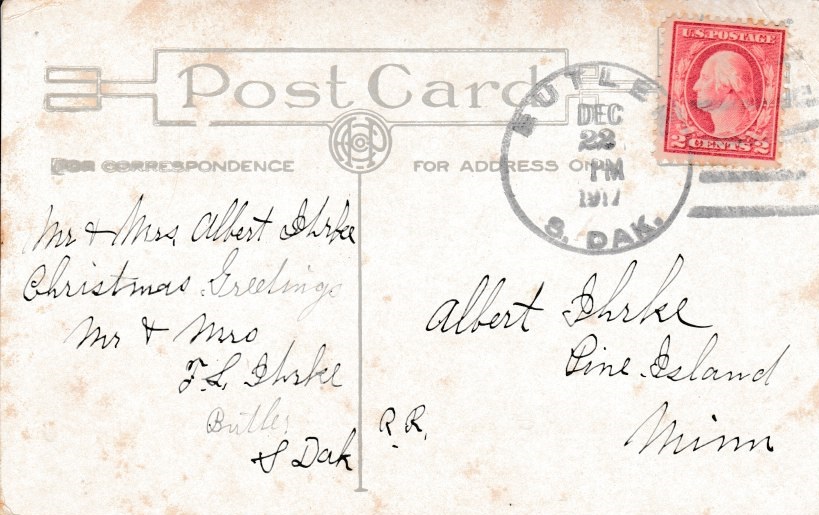 Post Card
FOR CORRESPONDENCE
FOR ADDRESS ON
BUTLE
DEC
22
PM
1917
S. DAK.
U.S. POSTAGE
2 CENTS 2
Mr & Mrs. Albert Ihrke
Christmas Greetings
Mr & Mrs
F. L. Ihrke
Butler
S Dak
Albert Ihrke
Pine Island
R. R.
Minn